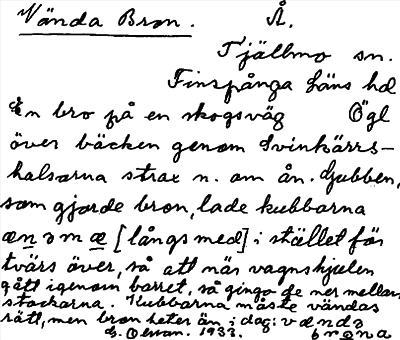 Vända Bron. Å.
Tjällmo sn.
Finspånga läns hd
En bro på en skogsväg Ögl
över bäcken genom Svinkärrs-
halsarna strax n. om ån. Gubben,
som gjorde bron, lade kubbarna
æn ɔ m æ [långs med] i stället för
tvärs över, så att när vagnshjulen
gått igenom barret, så gingo de ner mellan
stockarna. Kubbarna måste vändas
rätt, men bron heter än i dag: vændɔ
brona
1933.